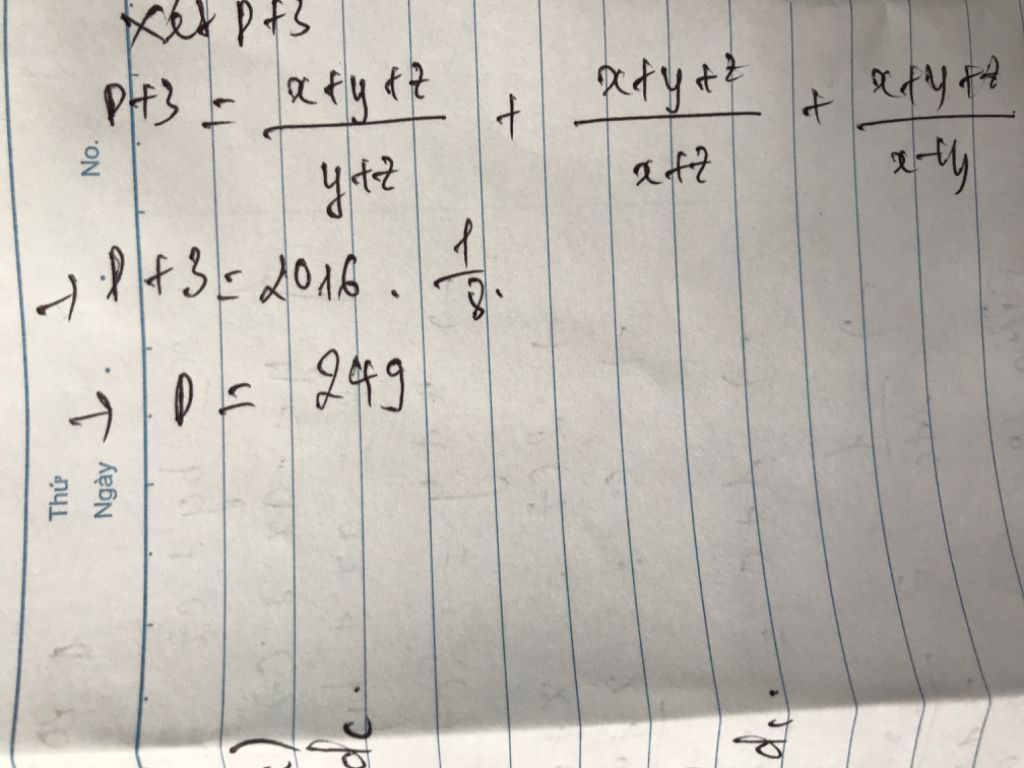 Xét P+3
P+3 = \frac{x+y+z}{y+z} + \frac{x+y+z}{x+z} + \frac{x+y+z}{x+y}
→ P+3 = 2016 . \frac{1}{8}.
→ P = 249
No.
Thứ
Ngày